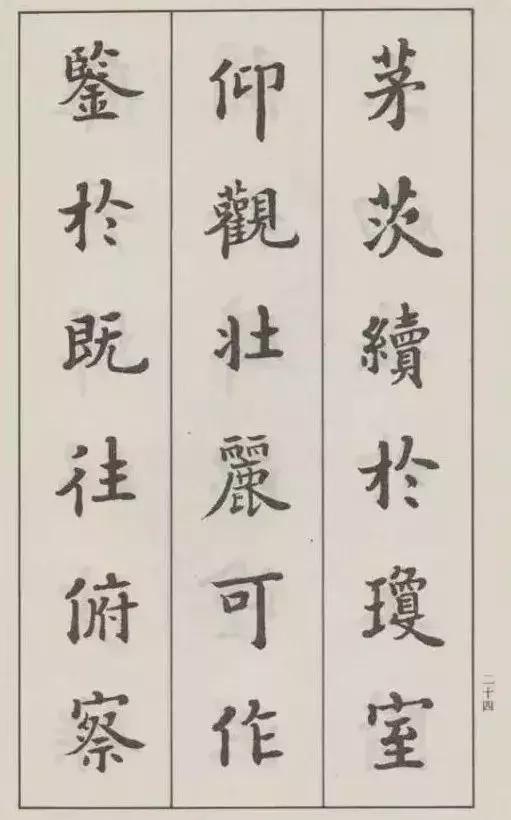 茅茨續於瓊室
仰觀壯麗可作
鑒於既往俯察
二十四